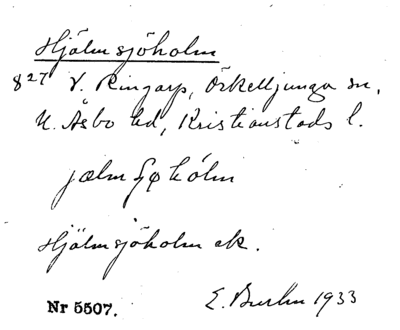 Hjälmsjöholm
8²⁷ V. Ringarp, Örkelljunga sn,
N. Åsbo hd, Kristianstads l.
jælmʃøhólm
Hjälmsjöholm ek.
Nr 5507.
E. 1933